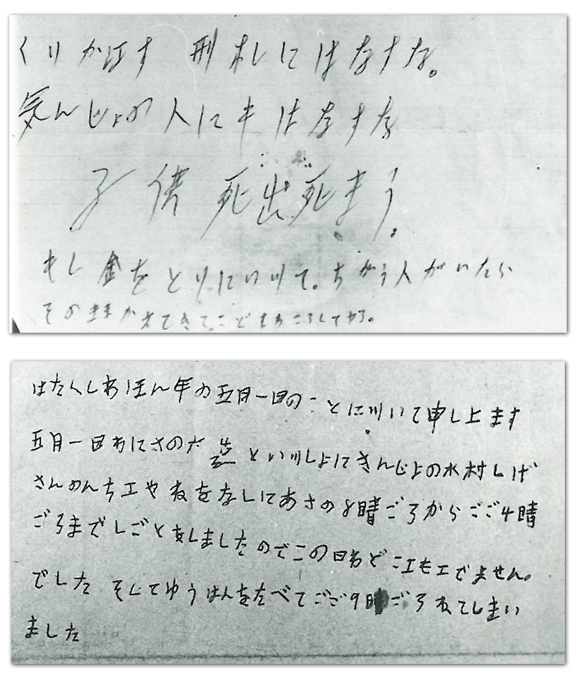 くりかえす 刑札にはなすな。
気んじょの人にもはなすな
子供死出死まう。
もし金をとりにいッて。ちがう人がいたら
そのままかえてきて。こどもわころしてヤる。
はたくしわほん年の五月一日のことにツいて申し上ます
五月一日わにさの六造といッしょにきんじょの水村しげ
さんのんちエやねをなしにあさの8晴ごろからごご4晴
ごろまでしごとをしましたのでこの日わどこエもエでません。
でした そしてゆうはんをたべてごご9 ごろねてしまい
ました